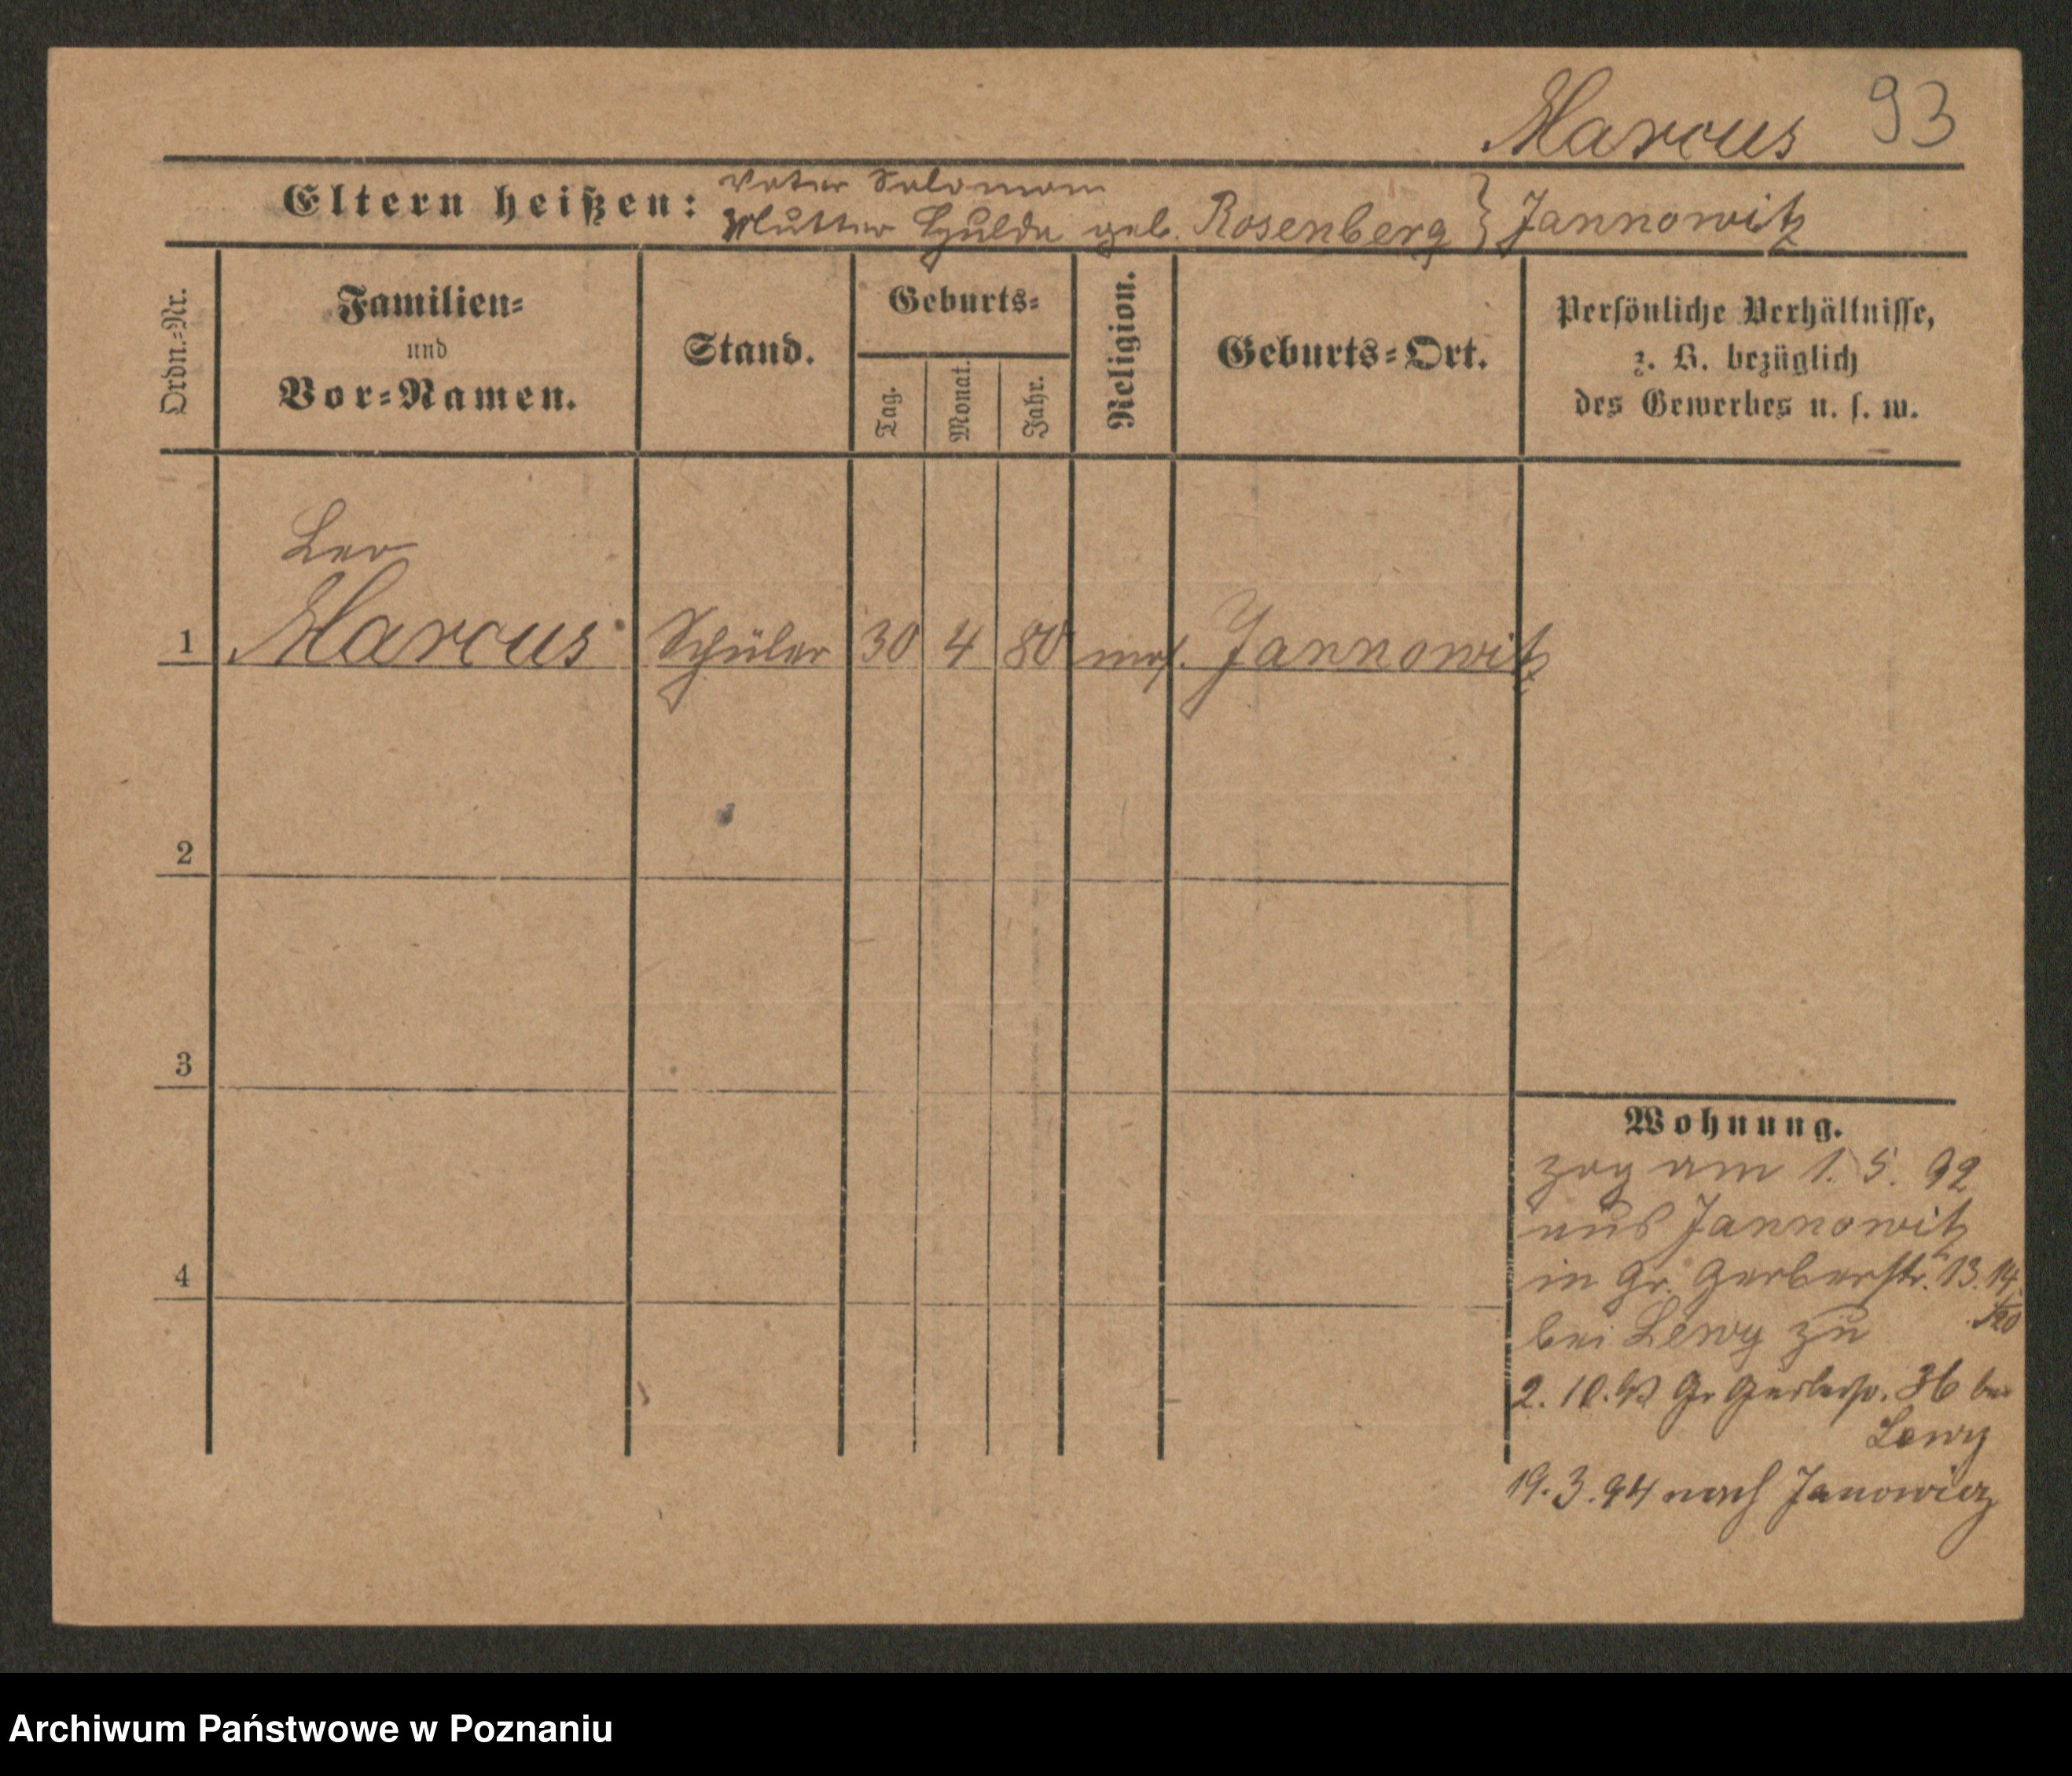 Marcus 93
Eltern heißen: Vater Salomon
Mutter Hulda geb. Rosenberg } Jannowitz
Ordn.-Nr.
Familien-
und
Vor-Namen.
Stand.
Geburts-
Tag.
Monat.
Jahr.
Religion.
Geburts-Ort.
Persönliche Verhältnisse,
z. B. bezüglich
des Gewerbes u. s. w.
Leo
1 Marcus Schüler 30 4 80 mos. Jannowitz
2
3
4
Wohnung.
zog am 1. 5. 92
aus Jannowitz
in Gr. Gerberstr. 13.14.
bei Lewy zu
2. 10. 93 Gr Gerberstr. 36 bei
Lewy
19. 3. 94 nach Janowicz
Archiwum Państwowe w Poznaniu